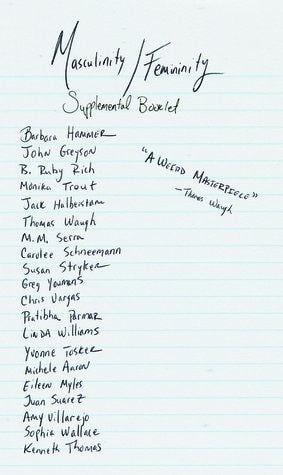 Masculinity / Femininity
Supplemental Booklet
Barbara HAMMER
John Greyson
B. Ruby Rich
Monika Treut
Jack Halberstam
Thomas Waugh
M.M. Serra
Carolee Schneemann
Susan Stryker
Greg Youmans
Chris Vargas
Pratibha Parmar
LINDA Williams
Yvonne Tasker
Michele Aaron
Eileen Myles
Juan Suarez
Amy Villarejo
Sophia Wallace
Kenneth Thomas
"A WEIRD MASTERPIECE"
—Thomas Waugh